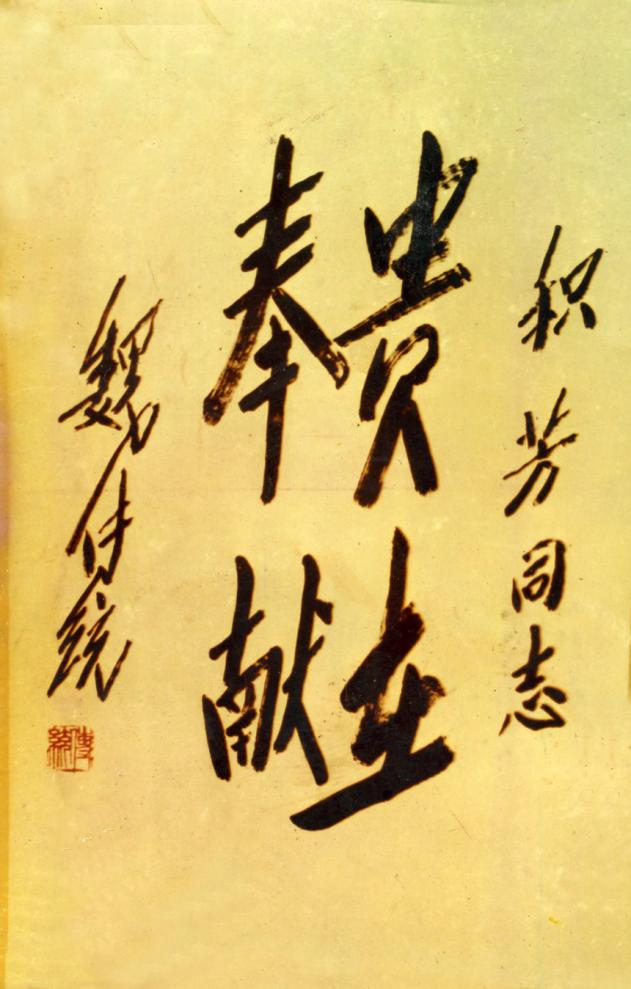 积芳同志
贵在
奉献
魏传统
傳統